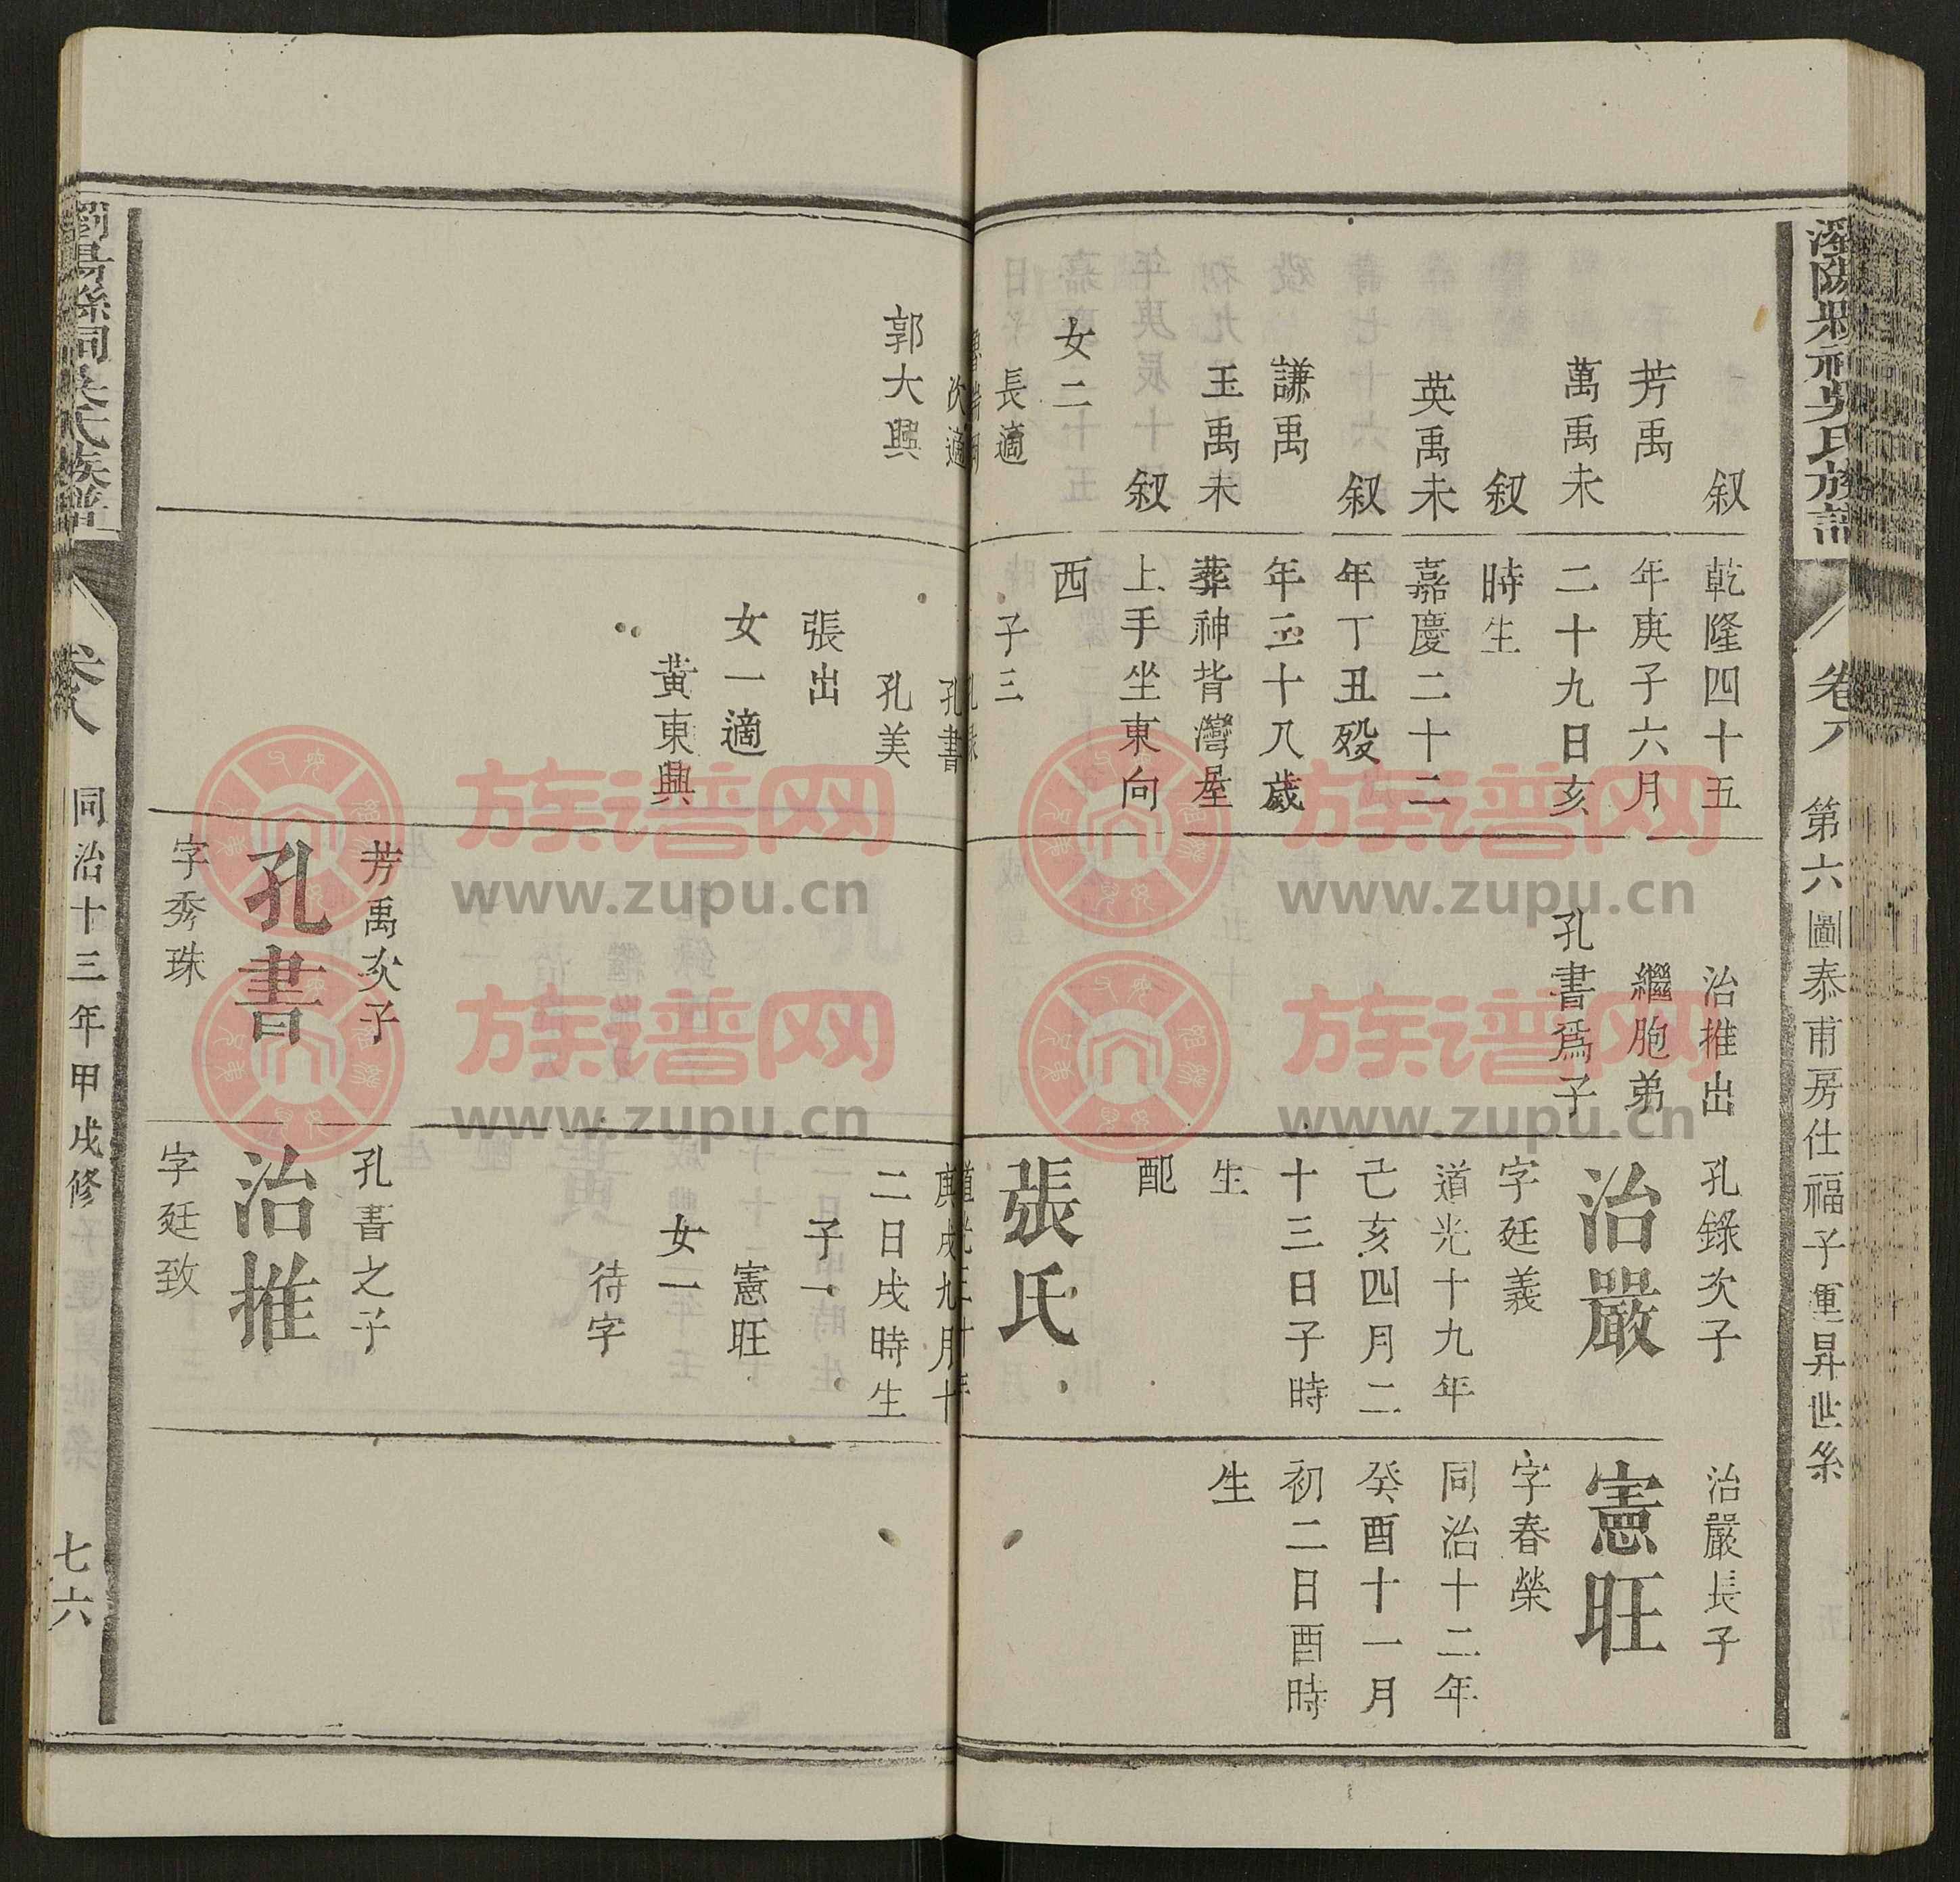 卷八
第六圖泰甫房仕福子運昇世系
叙
芳禹
萬禹未
叙
英禹未
叙
謙禹
玉禹未
叙
女二
長適
次適
郭大興
乾隆四十五
年庚子六月
二十九日亥
時生
嘉慶二十二
年丁丑殁
年三十八歲
葬神背灣屋
上手坐東向
西
子三
孔書
孔美
張出
女一適
黃東興
治推出
繼胞弟
孔書爲子
芳禹次子
孔書
字秀珠
孔錄次子
治嚴
字廷義
道光十九年
己亥四月二
十三日子時
生
配
張氏
道光三十年
庚戌九月十
二日戌時生
子一
憲旺
女一
待字
孔書之子
治推
字廷致
治嚴長子
憲旺
字春榮
同治十二年
癸酉十一月
初二日酉時
生
卷八
同治十三年甲戌修
七六
族谱网
www.zupu.cn
族谱网
www.zupu.cn
族谱网
www.zupu.cn
族谱网
www.zupu.cn